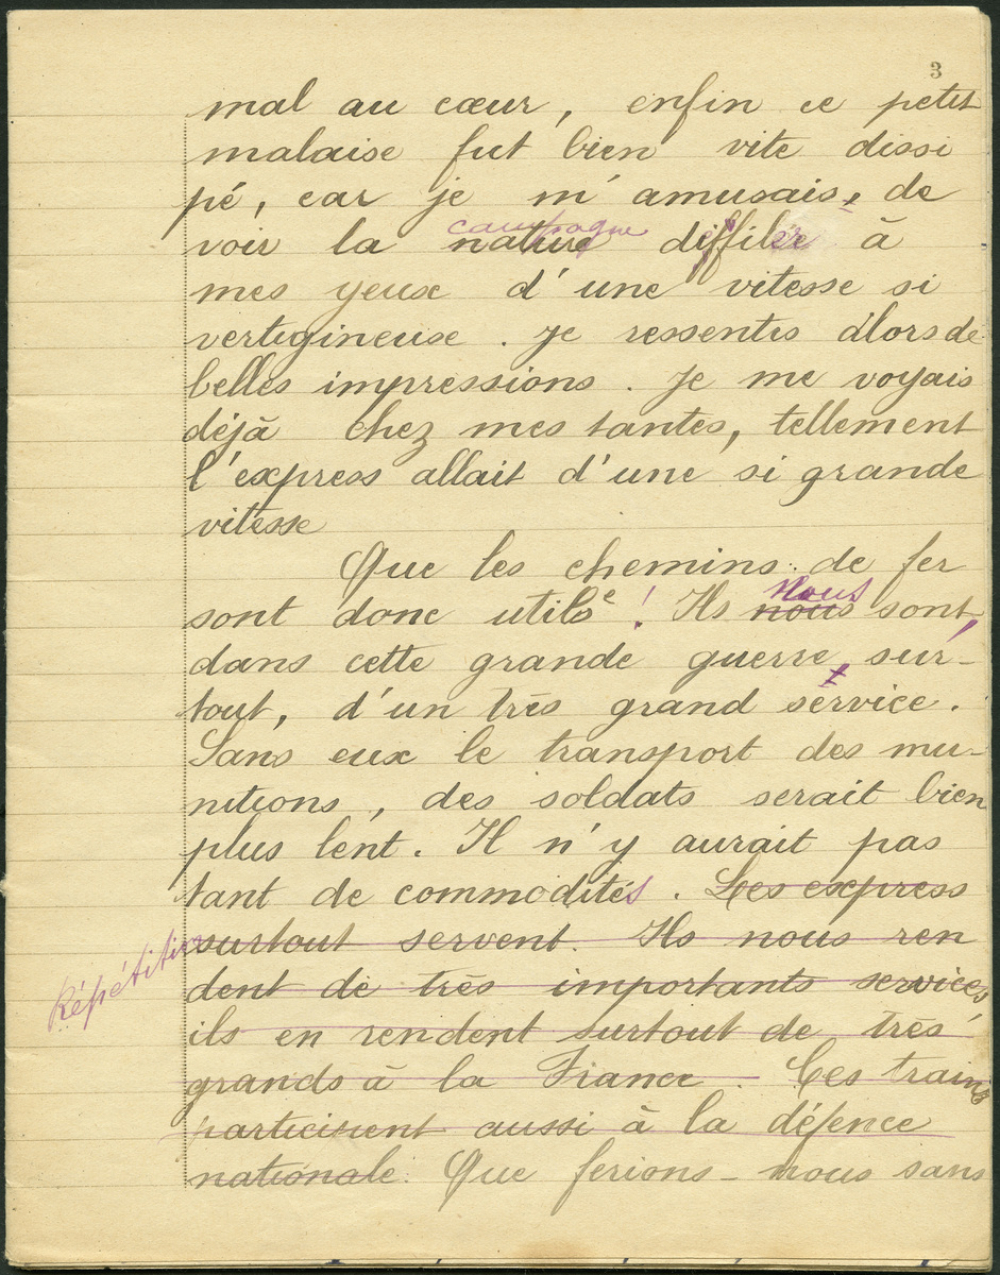 3
mal au cœur, enfin ce petit
malaise fut bien vite dissi
pé, car je m'amusais, de
campagne
voir la nature diffiler à
mes yeux d'une vitesse si
vertigineuse. Je ressentis alors de
belles impressions. Je me voyais
déjà chez mes tantes, tellement
l'express allait d'une si grande
vitesse
Que les chemins de fer
Nous
sont donc utilse ! Ils nous sont,
dans cette grande guerre, sur-
tout, d'un très grand service.
Sans eux le transport des mu-
nitions, des soldats serait bien
plus lent. Il n'y aurait pas
tant de commodités. Les express
surtout servent. Ils nous ren
Répétition
dent de très importants services,
ils en rendent surtout de très
grands à la France. Ces trains
participent aussi à la défence
nationale. Que ferions-nous sans